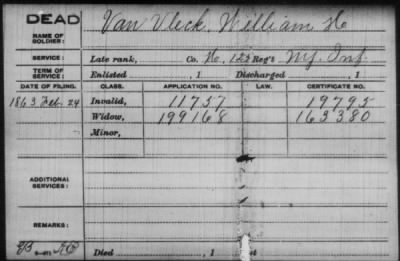 DEAD
NAME OF SOLDIER: Van Vleck, William H
SERVICE: Late rank, Co. H, 125 Reg't NY. Inf.
TERM OF SERVICE: Enlisted , 1 Discharged , 1
DATE OF FILING. CLASS. APPLICATION NO. LAW. CERTIFICATE NO.
1863 Feb. 24 Invalid, 11757 19795
Widow, 199168 163380
Minor,
ADDITIONAL SERVICES:
REMARKS:
Died , 1